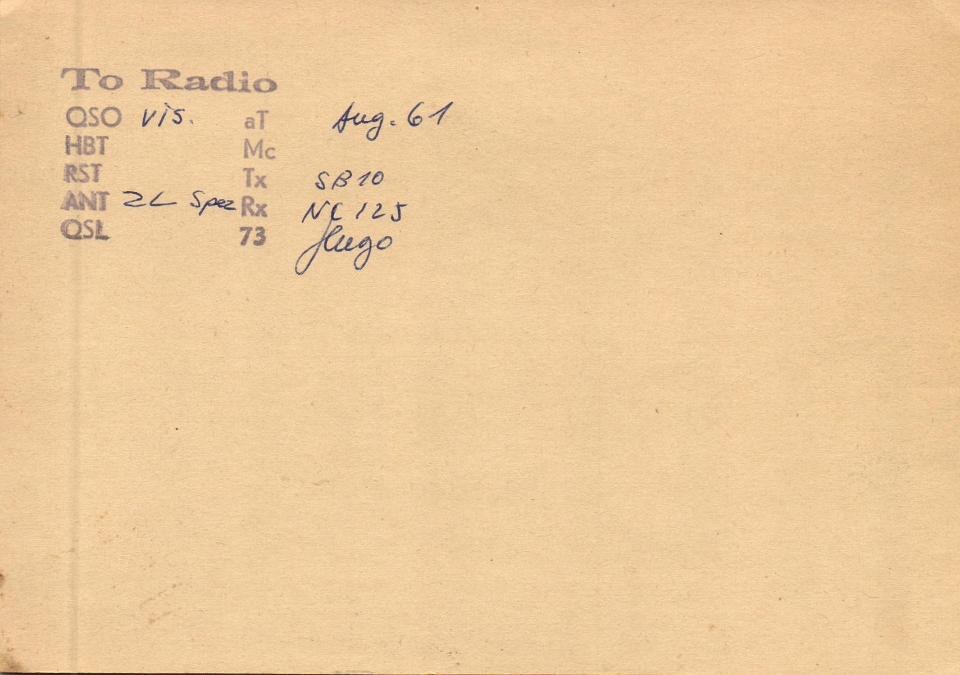 To Radio
QSO vis. aT Aug. 61
HBT Mc
RST Tx SB10
ANT ZL Spez Rx NC 125
QSL 73 Hugo